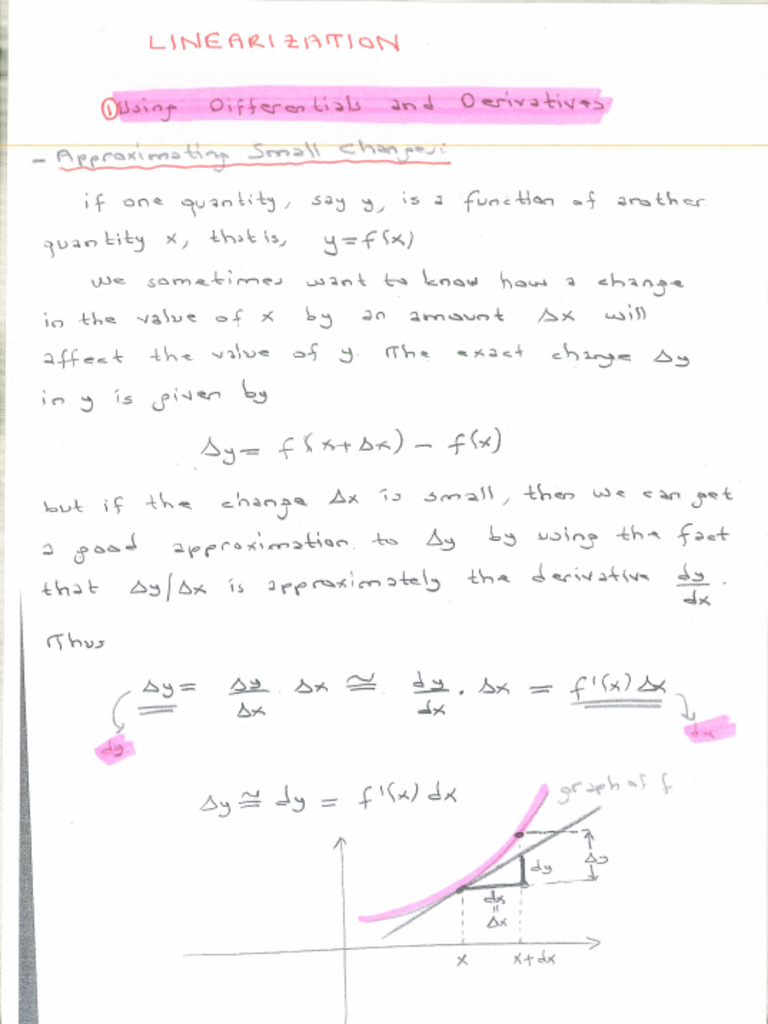 LINEARIZATION
① Using Differentials and Derivatives
- Approximating Small Changes:
if one quantity, say y, is a function of another
quantity x, that is, y=f(x)
We sometimes want to know how a change
in the value of x by an amount Δx will
affect the value of y. The exact change Δy
in y is given by
Δy = f(x+Δx) - f(x)
but if the change Δx is small, then we can get
a good approximation to Δy by using the fact
that Δy/Δx is approximately the derivative dy/dx.
Thus
Δy = Δy/Δx . Δx ≅ dy/dx . Δx = f'(x) Δx
dy dx
Δy ≅ dy = f'(x) dx
graph of f
Δy
dy
dx
=
Δx
x x+dx